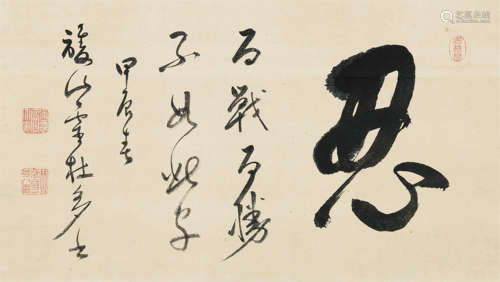 忍
百戰百勝
不如此字
甲辰春
山雲杜多書